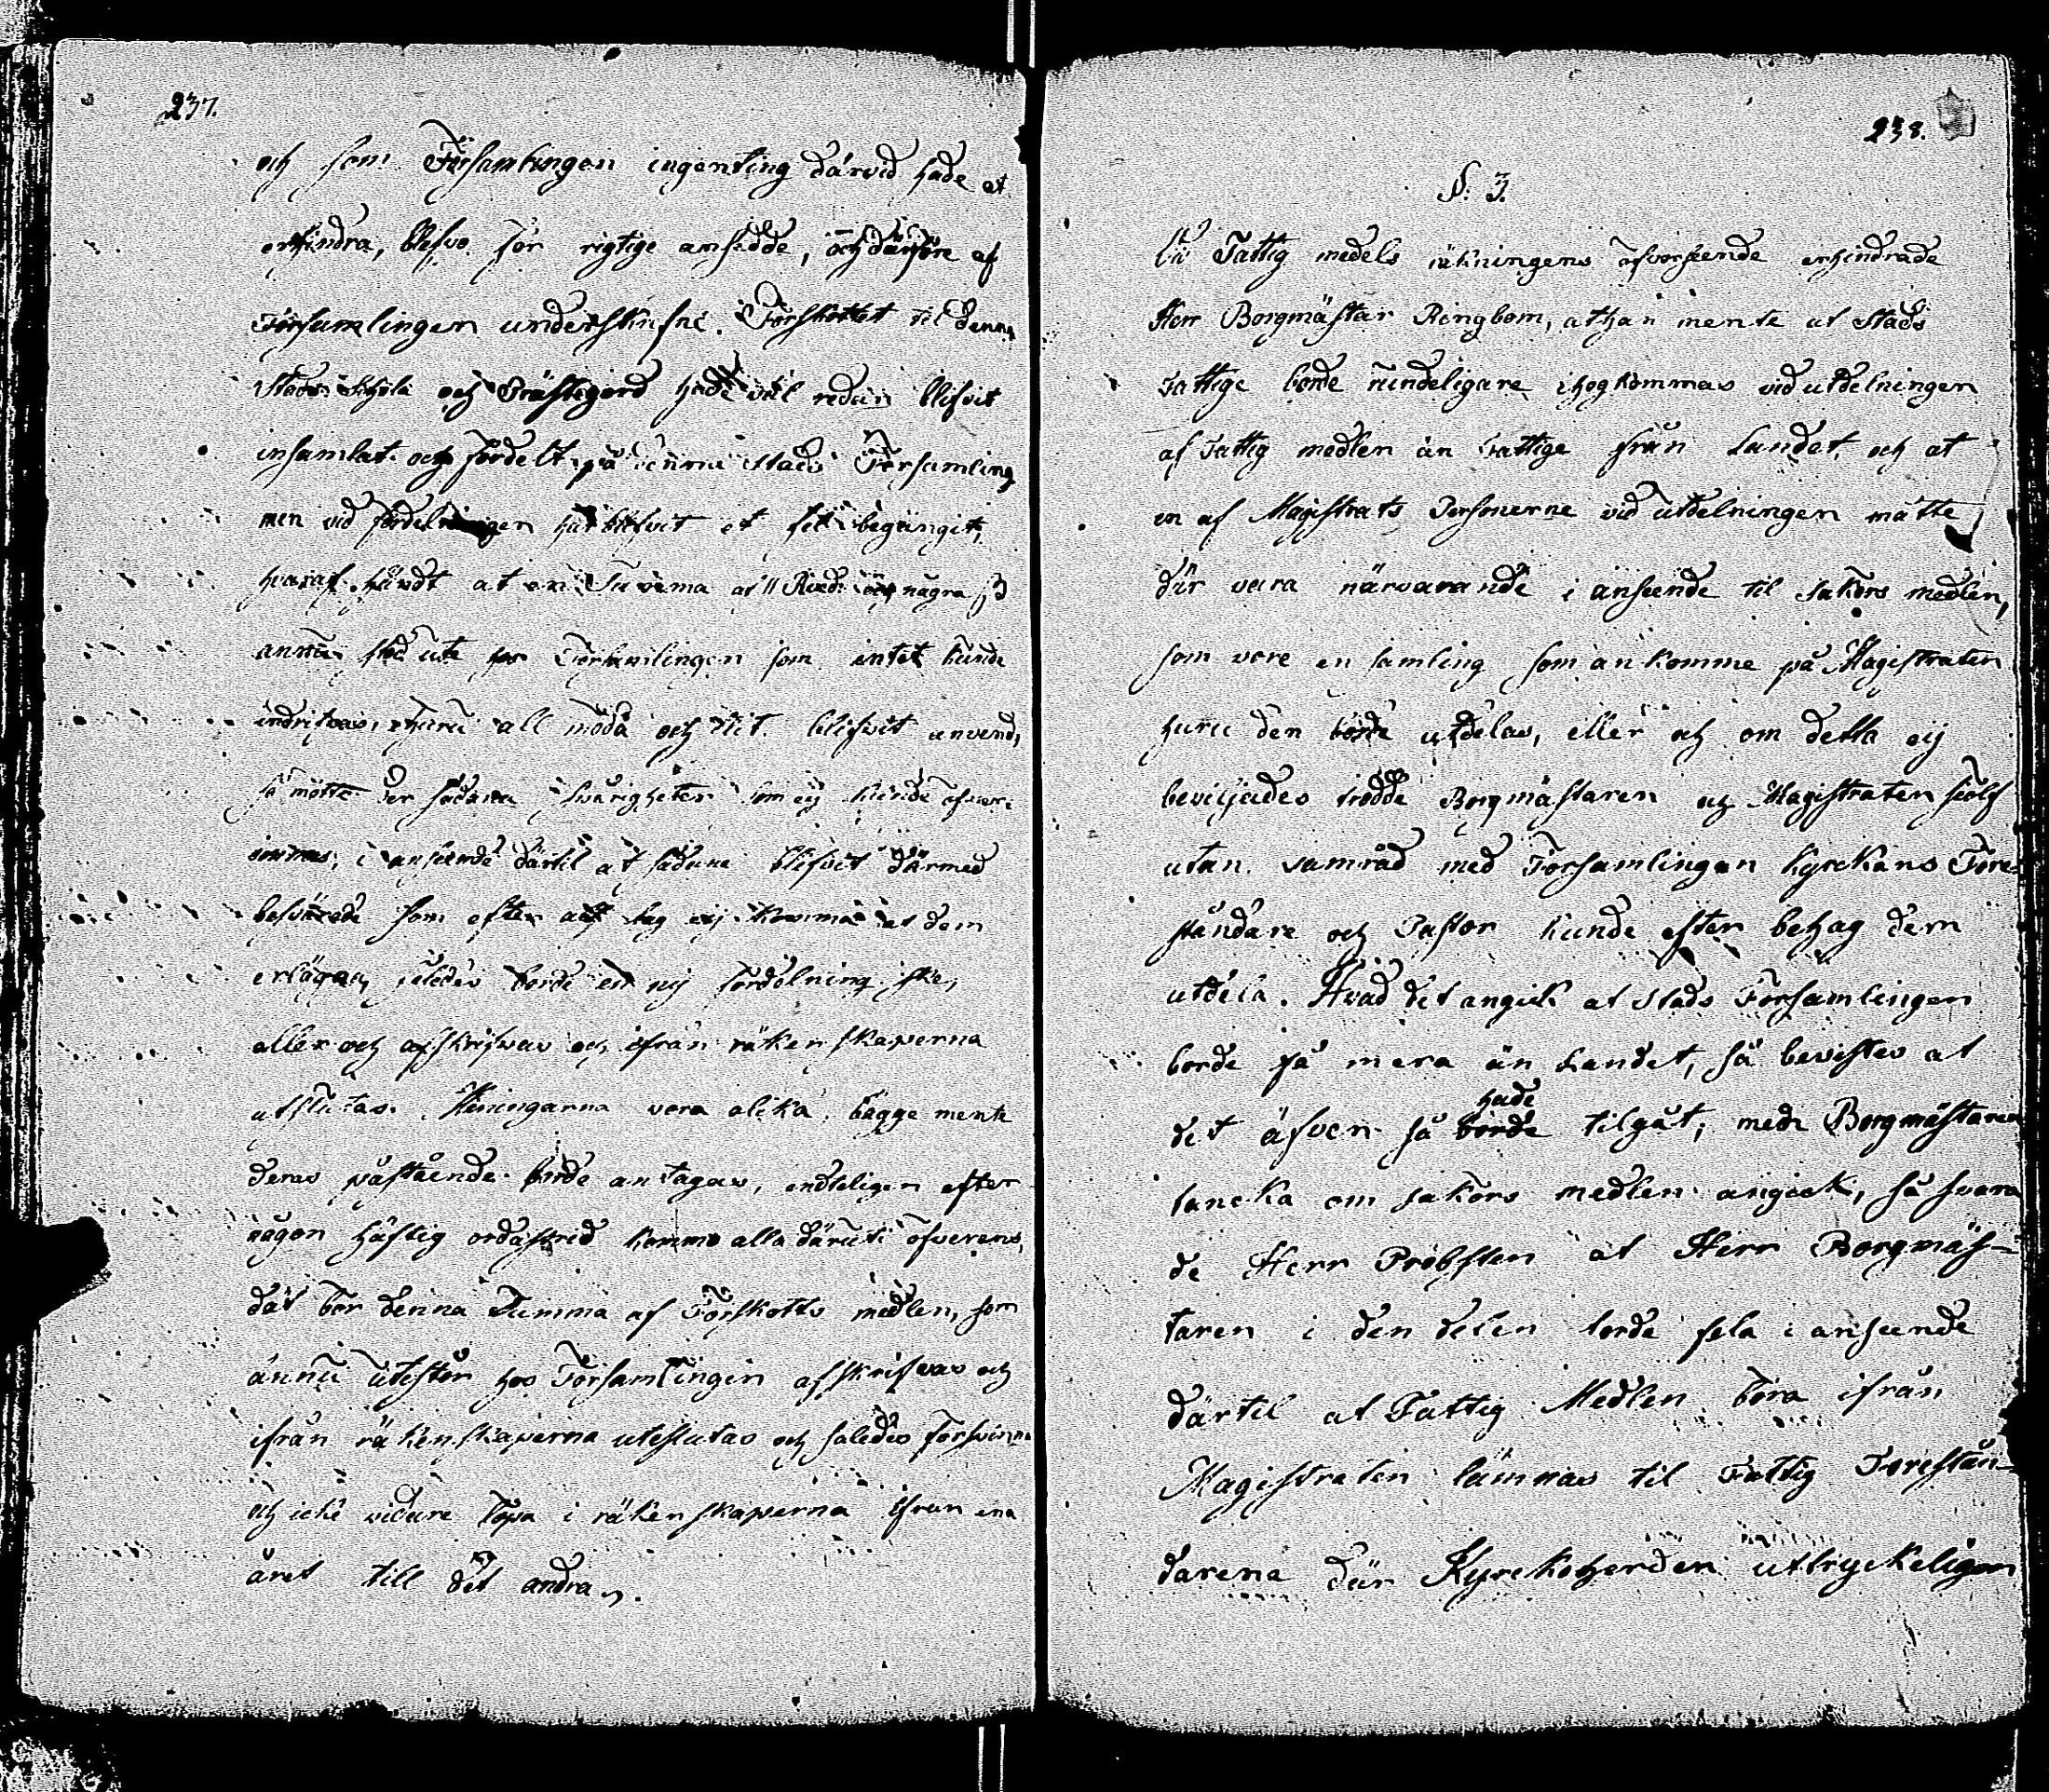 237.
och som Församlingen ingenting därvid hade at
erhindra, blefvo för rigtige ansedde, och därföre af
Församlingen underskrifne. Förskottet til denna
Stads Schola och Prästegord hade väl redan blifvit
insamlat och fördelt på denna Stads Församling
men vid fördelningen har blifvit et fel begängit,
hvaraf händt at en Summa af 11 Rd: och några ß
annu stod ute hos Församlingen som intet kunde
indrifvas, ehuru all möda och flit blifvit anvend,
så mötte der sådana svårigheter som eij kunde öfvervi
innas, i anseende därtil at sådane blifvit därmed
besvärade som efter lag eij komma at dem
erlägga, således borde en nij fördelning ske,
eller och afskrifvas och ifrån räkenskaperna
utslutas. Meningarna vora olika, bägge mente
deras påstående borde antagas, endteligen efter
någon häftig ordastrid kommo alla däruti öfverens,
dät bör denna Summa af Förskotts medlen, som
ännu utestår hos Församlingen afskrifvas och
ifrån räkenskaperna uteslutas och således försvinna
och icke vidare löpa i räkenskaperna ifrån ena
året till det andra.
238.
§. 3.
Vid Fattig medels räkningens öfverseende erhindrade
Herr Borgmästar Ringbom, at han mente at Stads
Fattige borde rundeligare ihogkommas vid utdelningen
af Fattig medlen än Fattige från Landet, och at
en af Magistrats Personerne vid utdelningen måtte
där vara närvarande i anseende til sakörs medlen,
som vore en samling som ankomme på Magistraten
huru den borde utdelas, eller och om detta eij
beviljades trodde Borgmästaren och Magistraten sielf
utan samråd med Församlingen Kyrckans Före-
ståndare och Pastor kunde efter behag dem
utdela. Hvad det angick at Stads Församlingen
borde få mera än Landet, så bevistes at
hade
det äfven så borde tilgåt, mede Borgmästarens
tancka om sakörs medlen angick, så svara
de Herr Probsten at Herr Borgmäs-
taren i den delen torde fela i anseende
därtil at Fattig Medlen böra ifrån
Magistraten lämnas til Fattig Förestån-
darena där Kyrckoherden uttryckeligen